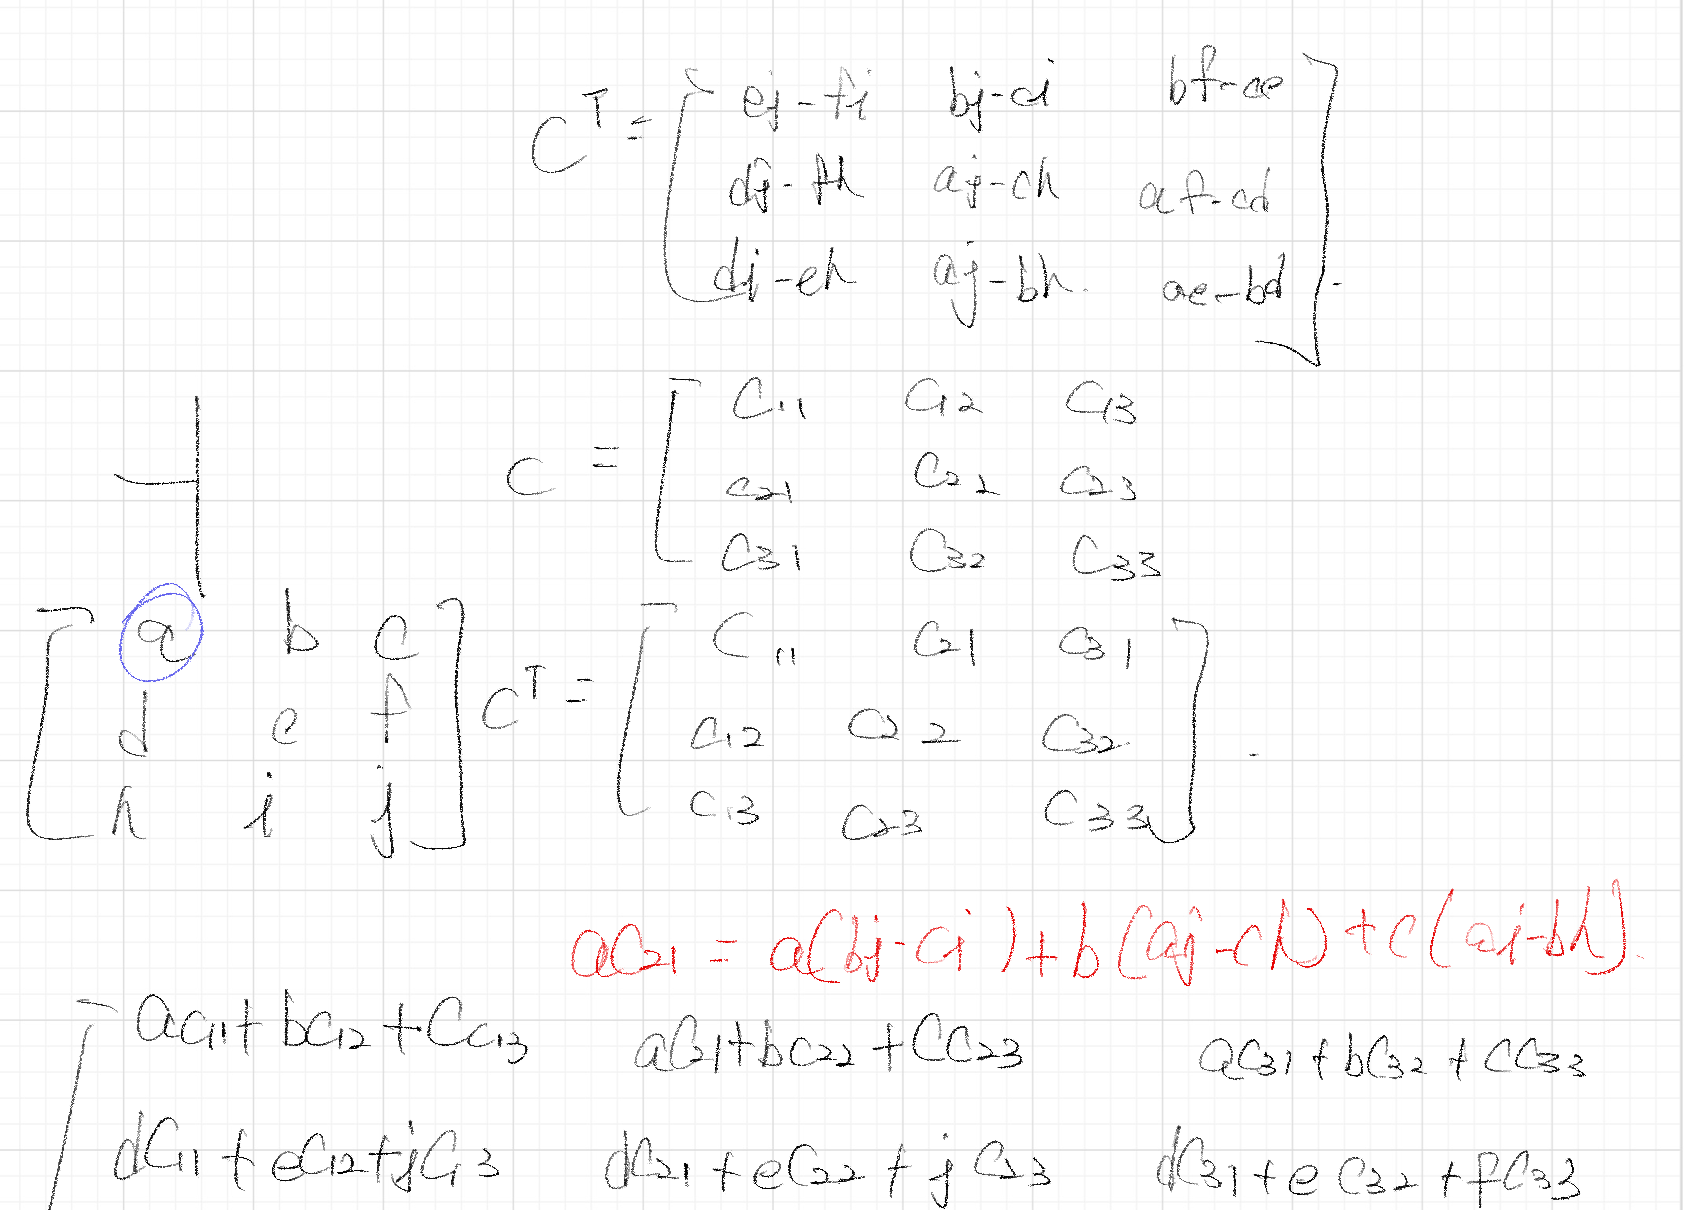 C^T = [ ej-fi bj-ci bf-ce
dj-fh aj-ch af-cd
di-eh aj-bh ae-bd ].
C = [ C11 C12 C13
C21 C22 C23
C31 C32 C33
[ a b c
d e f
h i j ]
C^T = [ C11 C21 C31
C12 C22 C32
C13 C23 C33 ].
aC21 = a(bj-ci)+b(aj-ch)+c(ai-bh).
[ aC11+bC12+CC13 aC21+bC22+CC23 aC31+bC32+CC33
dC11+eC12+jC13 dC21+eC22+jC23 dC31+eC32+fC33